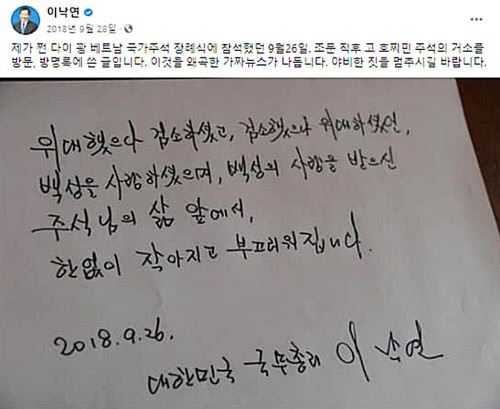 이낙연
2018년 9월 28일
제가 쩐 다이 꽝 베트남 국가주석 장례식에 참석했던 9월26일, 조문 직후 고 호찌민 주석의 거소를
방문, 방명록에 쓴 글입니다. 이것을 왜곡한 가짜뉴스가 나돕니다. 야비한 짓을 멈추시길 바랍니다.
위대했으나 검소하셨고, 검소했으나 위대하셨던,
백성을 사랑하셨으며, 백성의 사랑을 받으신
주석님의 삶 앞에서,
한없이 작아지고 부끄러워집니다.
2018.9.26.
대한민국 국무총리 이낙연